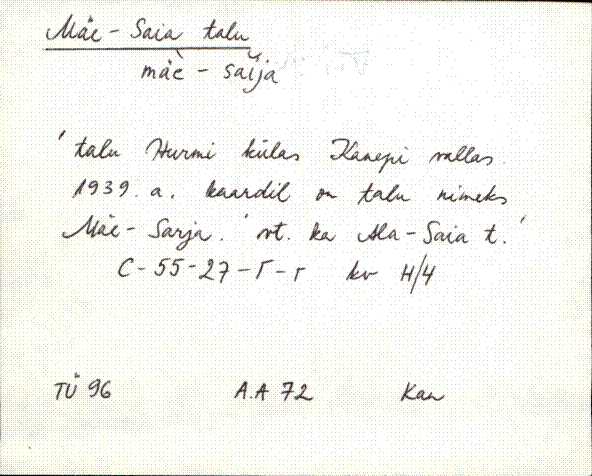 Mäe - Saia talu
mäè - saija
' talu Hurmi külas Kanepi vallas.
1939. a. kaardil on talu nimeks
Mäe - Sarja. ' vt. ka Ala - Saia t. '
C - 55 - 27 - Г - г kv H/4
TÜ 96 A.A 72 Kan